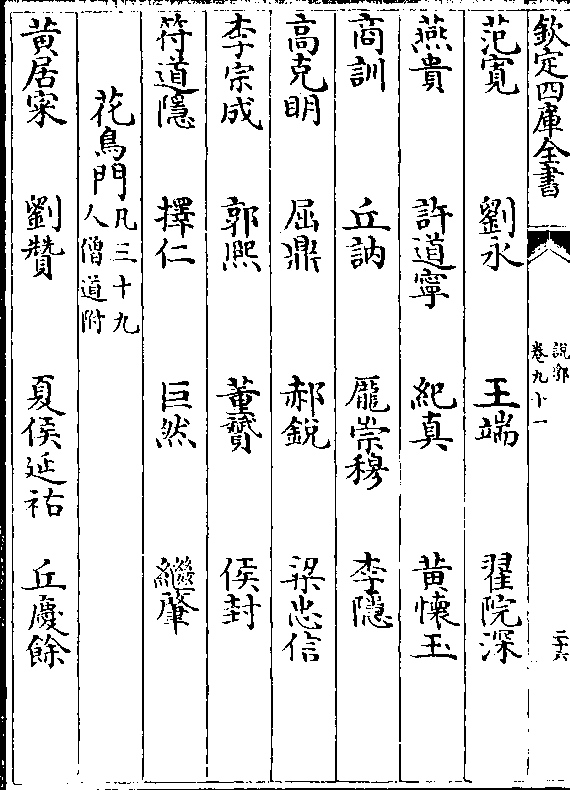 欽定四庫全書
說郛
卷九十一
二十六
范寬 劉永 王端 翟院深
燕貴 許道寧 紀真 黃懷玉
商訓 丘訥 龎崇穆 李隱
高克明 屈鼎 郝銳 梁忠信
李宗成 郭熙 董贇 侯封
符道隱 擇仁 巨然 繼肇
花鳥門 凡三十九人僧道附
黃居寀 劉贊 夏侯延祐 丘慶餘